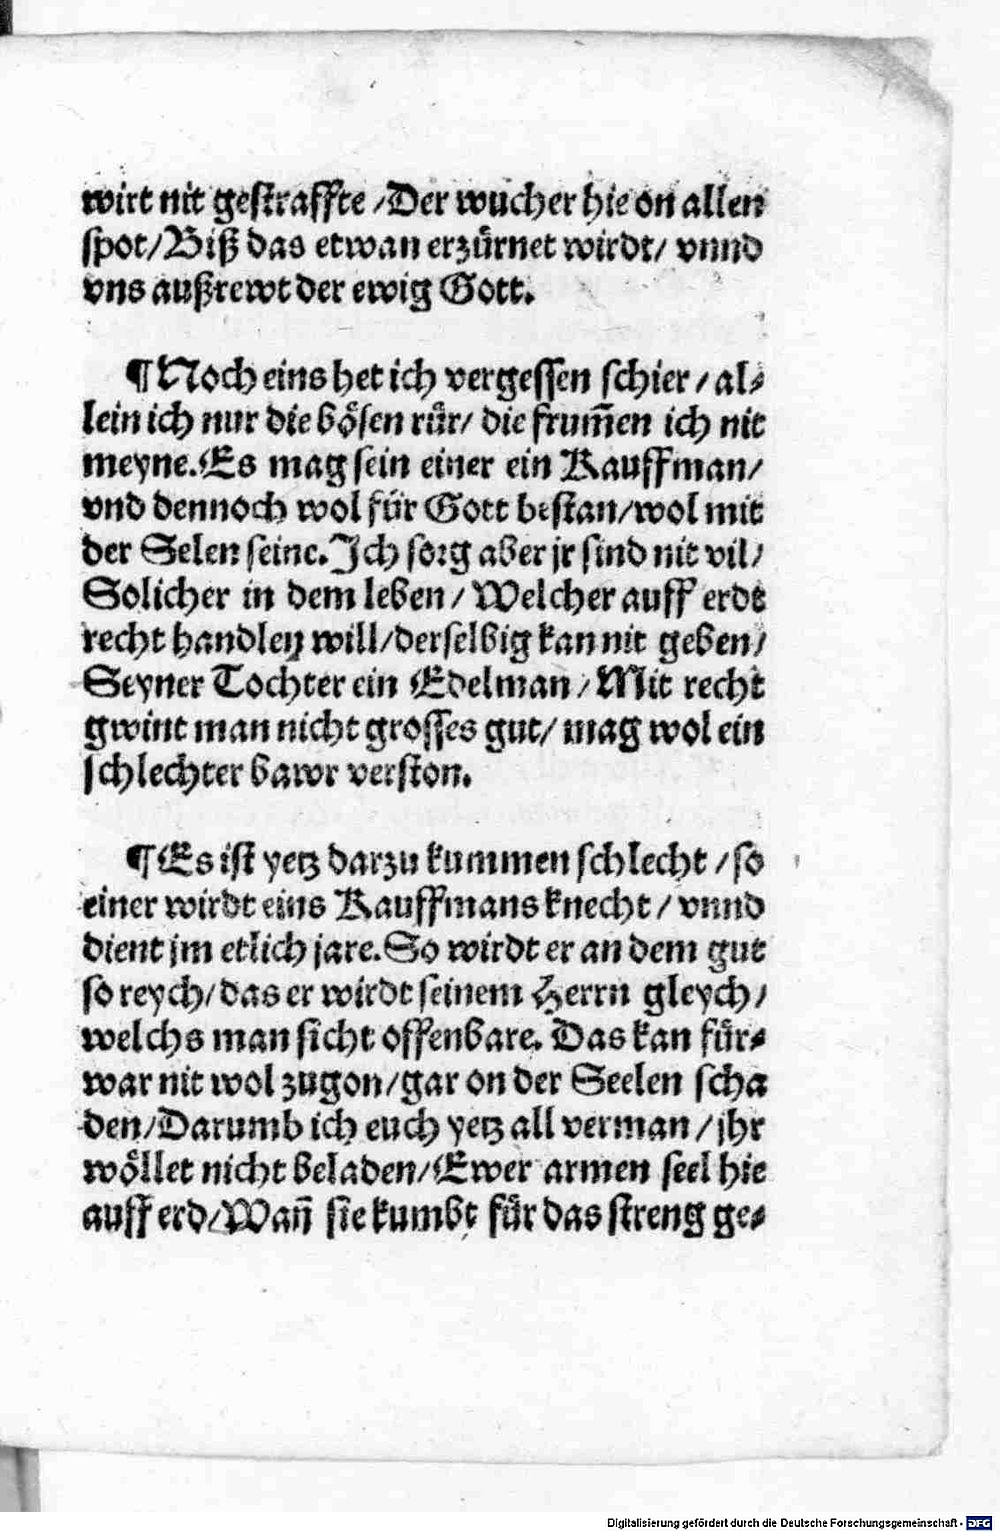 wirt nit gestraffte /Der wucher hie on allen
spot/Biß das etwan erzürnet wirdt/ vnnd
vns außrewt der ewig Gott.
¶Noch eins het ich vergessen schier / al⸗
lein ich nur die bösen rür/ die frum̃en ich nit
meyne.Es mag sein einer ein Kauffman/
vnd dennoch wol für Gott bestan/wol mit
der Selen seine.Ich sorg aber jr sind nit vil/
Solicher in dem leben / Welcher auff erdt
recht handlen will/derselbig kan nit geben/
Seyner Tochter ein Edelman / Mit recht
gwint man nicht grosses gut/ mag wol ein
schlechter bawr verston.
¶Es ist yetz darzu kummen schlecht /so
einer wirdt eins Kauffmans knecht / vnnd
dient jm etlich jare.So wirdt er an dem gut
so reych/das er wirdt seinem Herrn gleych/
welchs man sicht offenbare. Das kan für⸗
war nit wol zugon/gar on der Seelen scha
den/Darumb ich euch yetz all verman /jhr
wöllet nicht beladen/Ewer armen seel hie
auff erd/Wañ sie kumbt für das streng ge⸗
Digitalisierung gefördert durch die Deutsche Forschungsgemeinschaft - DFG